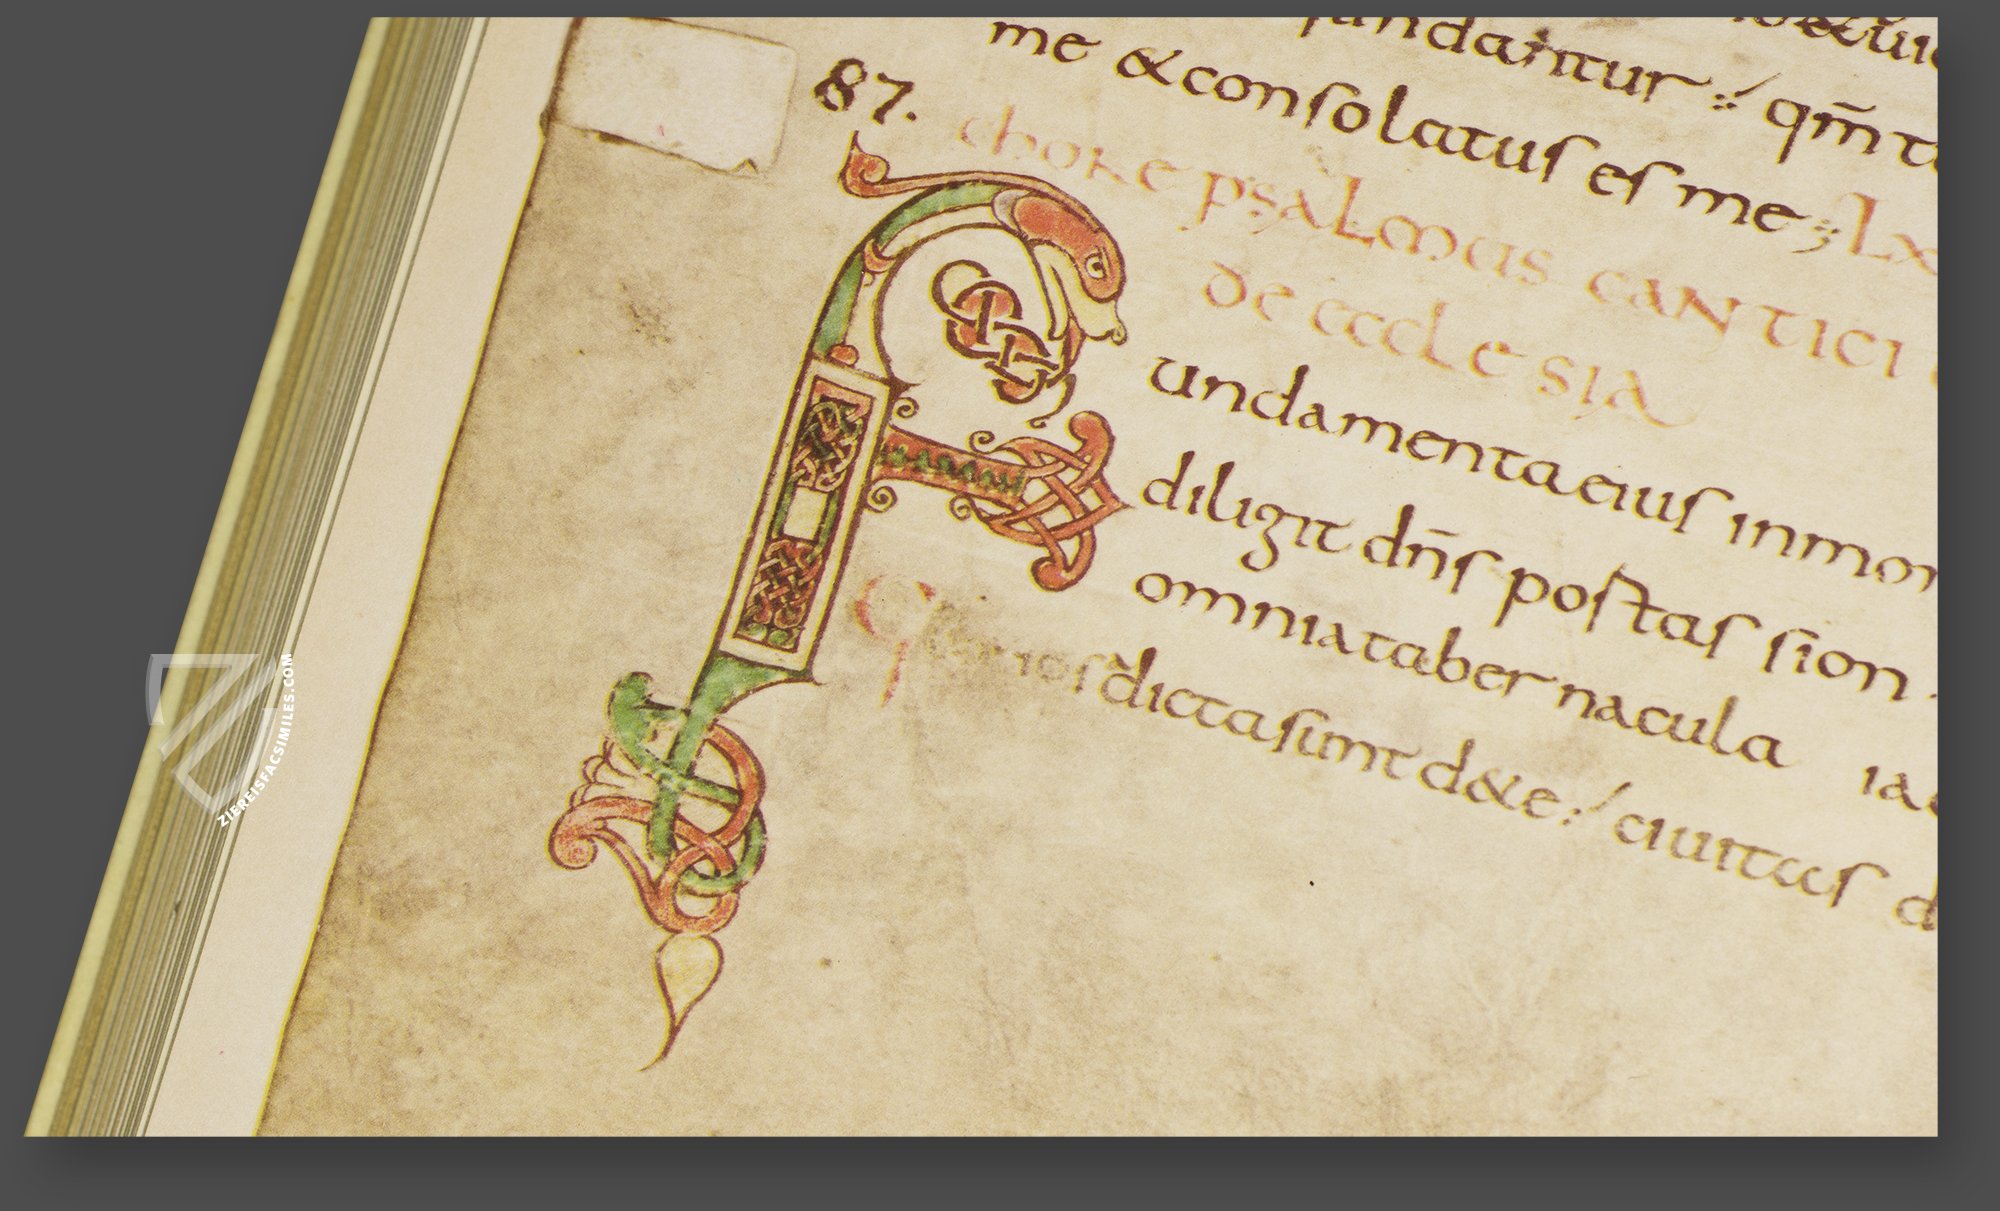 fundantur ; qm̄
me & consolatus es me ; Lx
87.
chore psalmus cantici
de ecclesia
Fundamenta eius in mon
diligit dn̄s portas sion
omnia tabernacula iac
Gloriosa dicta sunt de te ; ciuitas d
ZIEREISFACSIMILES.COM